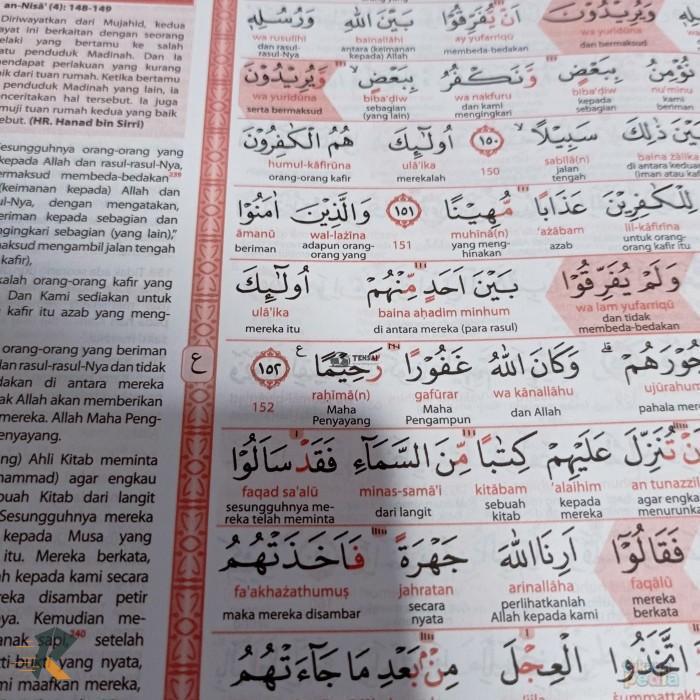 an-Nisā' (4): 148-149
Diriwayatkan dari Mujahid, kedua
ayat ini berkaitan dengan seorang
yang bertamu ke salah
penduduk Madinah. Dan Ia
mendapat perlakuan yang kurang
baik dari tuan rumah. Ketika bertamu
penduduk Madinah yang lain, ia
menceritakan hal tersebut. Ia juga
memuji tuan rumah kedua yang baik
(HR. Hanad bin Sirri)
Sesungguhnya orang-orang yang
kepada Allah dan rasul-rasul-Nya,
bermaksud membeda-bedakan²³⁹
(keimanan kepada) Allah dan
dengan mengatakan,
beriman kepada sebagian dan
mengingkari sebagian (yang lain),"
mengambil jalan tengah
kafir),
orang-orang kafir yang
Dan Kami sediakan untuk
kafir itu azab yang meng-
orang-orang yang beriman
dan rasul-rasul-Nya dan tidak
di antara mereka
akan memberikan
mereka. Allah Maha Peng-
Ahli Kitab meminta
agar engkau
Kitab dari langit
Sesungguhnya mereka
kepada Musa yang
itu. Mereka berkata,
kepada kami secara
disambar petir
Kemudian me-
anak sapi,²⁴⁰ setelah
bukti yang nyata,
maafkan mereka,
اَنْ يُّفَرِّقُوْا بَيْنَ اللّٰهِ وَرُسُلِهٖ
wa yurīdūna ay yufarriqū bainallāhi wa rusulihī
dan bermaksud membeda-bedakan antara (keimanan kepada) Allah dan rasul-rasul-Nya
نُؤْمِنُ بِبَعْضٍ وَّنَكْفُرُ بِبَعْضٍ وَّيُرِيْدُوْنَ
nu'minu biba'ḍiw wa nakfuru biba'ḍiw wa yurīdūna
kami beriman kepada sebagian dan kami mengingkari sebagian (yang lain) serta bermaksud
بَيْنَ ذٰلِكَ سَبِيْلًا ۝١٥٠ اُولٰۤىِٕكَ هُمُ الْكٰفِرُوْنَ
baina żālika sabīlā(n) 150 ulā'ika humul-kāfirūna
jalan tengah merekalah orang-orang kafir
لِلْكٰفِرِيْنَ عَذَابًا مُّهِيْنًا ۝١٥١ وَالَّذِيْنَ اٰمَنُوْا
lil-kāfirīna 'ażābam muhīnā(n) 151 wal-lażīna āmanū
untuk orang-orang kafir itu azab yang meng-hinakan adapun orang-orang yang beriman
وَلَمْ يُفَرِّقُوْا بَيْنَ اَحَدٍ مِّنْهُمْ اُولٰۤىِٕكَ
wa lam yufarriqū baina aḥadim minhum ulā'ika
dan tidak membeda-bedakan di antara mereka (para rasul) mereka itu
وَكَانَ اللّٰهُ غَفُوْرًا رَّحِيْمًا ۝١٥٢ ع
wa kānallāhu gafūrar raḥīmā(n) 152
dan Allah Maha Pengampun Maha Penyayang
تُنَزِّلَ عَلَيْهِمْ كِتٰبًا مِّنَ السَّمَاۤءِ فَقَدْ سَاَلُوْا
an tunazzila 'alaihim kitābam minas-samā'i faqad sa'alū
agar engkau kepada mereka sebuah kitab dari langit sesungguhnya me-reka telah meminta
فَقَالُوْٓا اَرِنَا اللّٰهَ جَهْرَةً فَاَخَذَتْهُمُ
faqālū arinallāha jahratan fa'akhażathumuṣ
mereka berkata perlihatkanlah Allah kepada kami secara nyata maka mereka disambar
اتَّخَذُوا الْعِجْلَ مِنْۢ بَعْدِ مَا جَاۤءَتْهُمُ